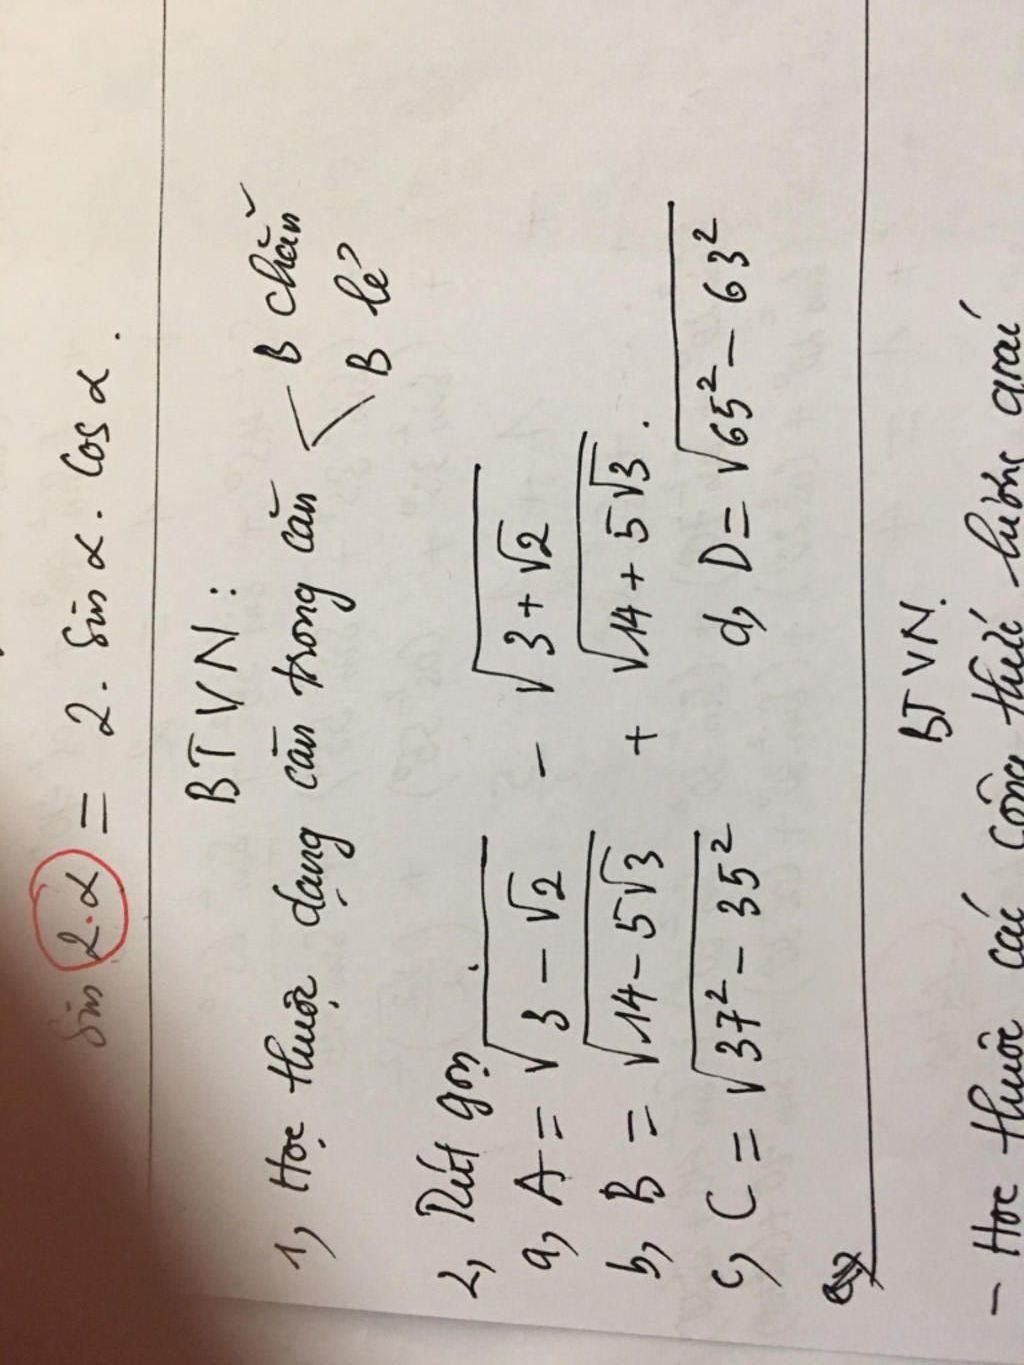 sin 2.α = 2. sin α. cos α.
BTVN:
1, Học thuộc dạng căn trong căn < B chẵn
B lẻ
2, Rút gọn
a, A = √(3 - √2) - √(3 + √2)
b, B = √(14 - 5√3) + √(14 + 5√3).
c, C = √(37² - 35²) d, D = √(65² - 63²)
BTVN.
- Học thuộc các công thức lượng giác